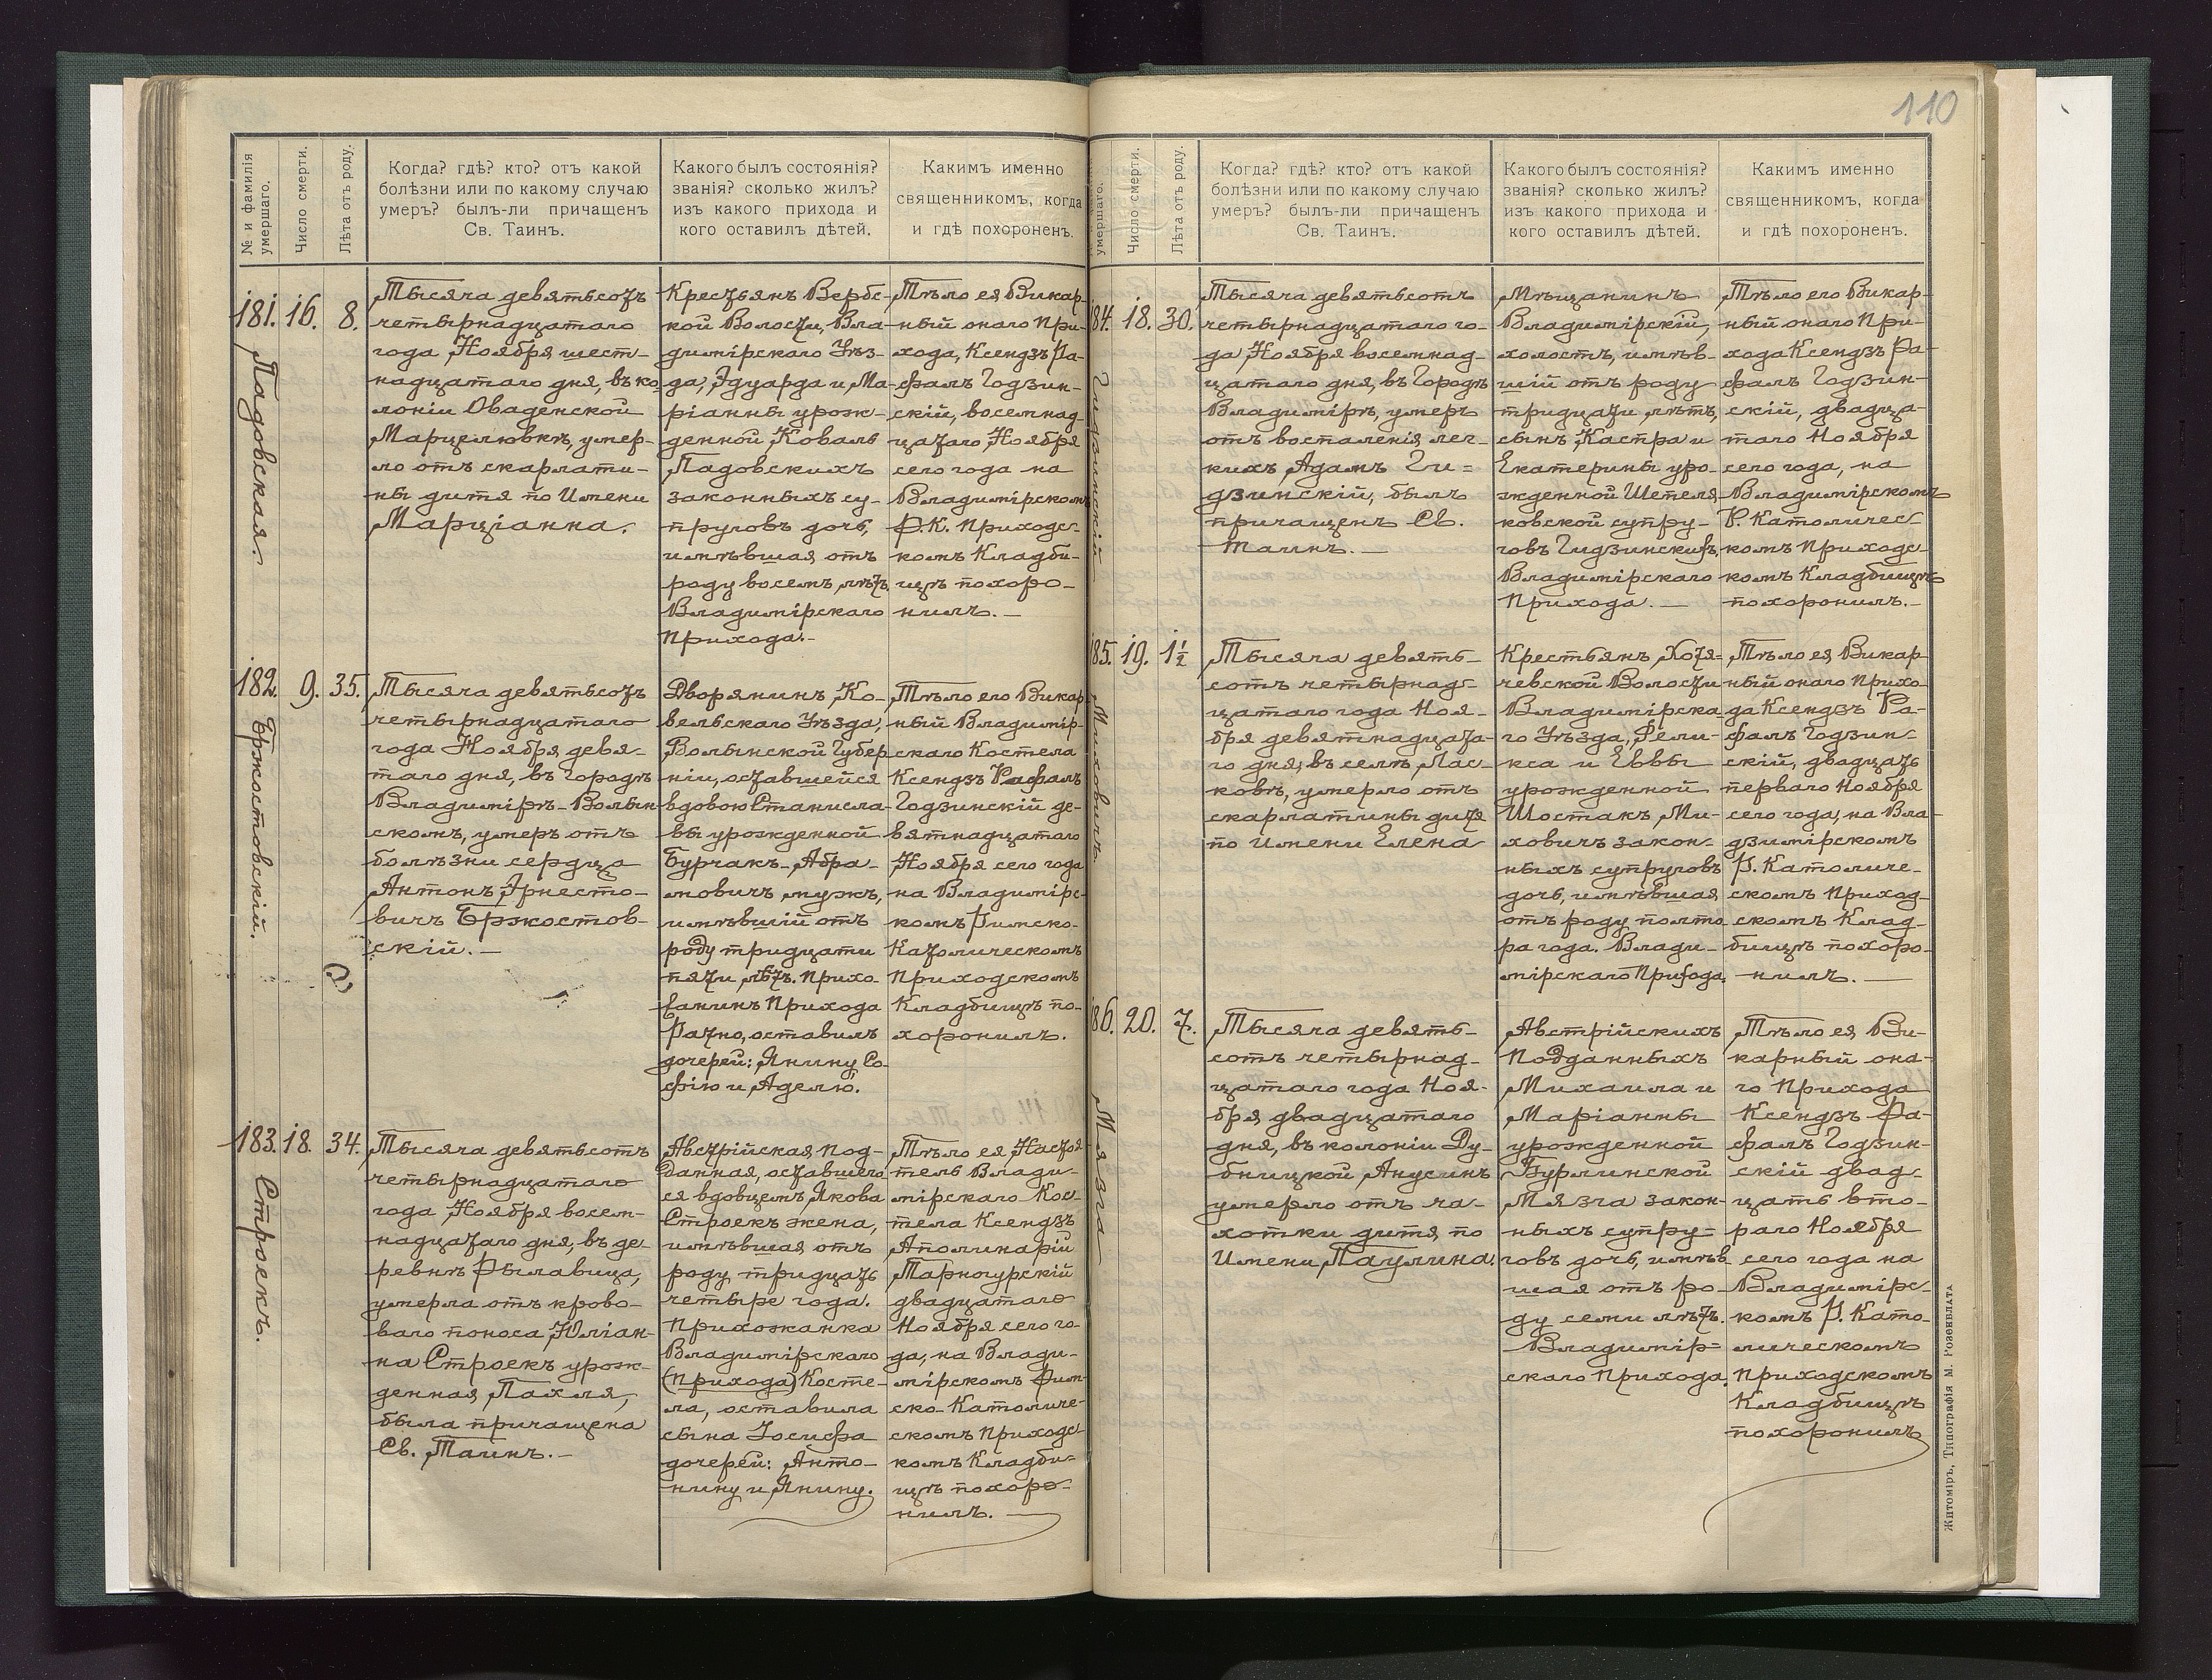 110
№ и фамилія умершаго.
Число смерти.
Лѣта отъ роду.
Когда? гдѣ? кто? отъ какой
болѣзни или по какому случаю
умеръ? былъ-ли причащенъ
Св. Таинъ.
Какого былъ состоянія?
званія? сколько жилъ?
изъ какого прихода и
кого оставилъ дѣтей.
Какимъ именно
священникомъ, когда
и гдѣ похороненъ.
181.
Падовская.
16.
8.
Тысяча девятьсотъ
четырнадцатаго
года Ноября шест-
надцатаго дня, въ ко-
лоніи Оваденской
Марцелювкѣ, умер-
ло отъ скарлати-
ны дитя по Имени
Марціанна.
Крестьянъ Вербс-
кой Волости, Вла-
димірскаго Уѣз-
да, Эдуарда и Ма-
ріанны урож-
денной Коваль
Падовскихъ
законныхъ су-
пруговъ дочь,
имѣвшая отъ
роду восемь лѣтъ
Владимірскаго
Прихода.-
Тѣло ея Викар-
ный онаго При-
хода, Ксендзъ Ра-
фалъ Годзин-
скій, восемнад-
цатаго Ноября
сего года на
Владимірскомъ
Р.К. Приходс-
комъ Кладби-
щѣ похоро-
нилъ.-
182.
Бржостовскій.
9.
35.
Тысяча девятьсотъ
четырнадцатаго
года Ноября девя-
таго дня, въ городѣ
Владимірѣ-Волын-
скомъ, умеръ отъ
болѣзни сердца
Антонъ Эрнесто-
вичъ Бржостов-
скій.-
Дворянинъ Ко-
вельскаго Уѣзда,
Волынской Губер-
ніи, оставшейся
вдовою Станисла-
вы урожденной
Бурчакъ-Абра-
мовичъ мужъ,
имѣвшій отъ
роду тридцати
пяти лѣтъ. Прихо-
жанинъ Прихода
Ратно, оставилъ
дочерей: Янину Со-
фію и Аделю.
Тѣло его Викар-
ный Владимір-
скаго Костела
Ксендзъ Рафалъ
Годзинскій де-
вятнадцатаго
Ноября сего года
на Владимірс-
комъ Римско-
Католическомъ
Приходскомъ
Кладбищѣ по-
хоронилъ.
183.
Строекъ.
18.
34.
Тысяча девятьсотъ
четырнадцатаго
года Ноября восем-
надцатаго дня, въ де-
ревнѣ Рылавица,
умерла отъ крова-
ваго поноса Юліан-
на Строекъ урож-
денная Пахля,
была причащена
Св. Таинъ.-
Австрійская под-
данная, оставшаго
ся вдовцемъ Якова
Строекъ жена,
имѣвшая отъ
роду тридцать
четыре года.
Прихожанка
Владимірскаго
(Прихода) Косте-
ла, оставила
сына Іосифа
дочерей: Анто-
нину и Янину.
Тѣло ея Настоя-
тель Влади-
мірскаго Кос-
тела Ксендзъ
Аполинарій
Тарногурскій
двадцатаго
Ноября сего го-
да, на Влади-
мірскомъ Рим-
ско-Католиче-
скомъ Приходс-
комъ Кладби-
щѣ похоро-
нилъ.-
умершаго.
Число смерти.
Лѣта отъ роду.
Когда? гдѣ? кто? отъ какой
болѣзни или по какому случаю
умеръ? былъ-ли причащенъ
Св. Таинъ.
Какого былъ состоянія?
званія? сколько жилъ?
изъ какого прихода и
кого оставилъ дѣтей.
Какимъ именно
священникомъ, когда
и гдѣ похороненъ.
184.
Гидзинскій
18.
30.
Тысяча девятьсотъ
четырнадцатаго го-
да Ноября восемнад-
цатаго дня, въ Городѣ
Владимірѣ, умеръ
отъ воспаленія лег-
кихъ Адамъ Ги-
дзинскій, былъ
причащенъ Св.
Таинъ.-
Мѣщанинъ
Владимірскій,
холостъ, имѣв-
шій отъ роду
тридцати лѣтъ,
сынъ Кастра и
Екатерины уро-
жденной Шетеля-
ковской супру-
говъ Гидзинскихъ,
Владимірскаго
Прихода.-
Тѣло его Викар-
ный онаго При-
хода Ксендзъ Ра-
фалъ Годзин-
скій, двадца-
таго Ноября
сего года, на
Владимірскомъ
Р. Католичес-
комъ Приходс-
комъ Кладбищѣ
похоронилъ.-
185.
Миховичъ
19.
1 1/2
Тысяча девять-
сотъ четырнад-
цатаго года Ноя-
бря девятнадцата-
го дня, въ селѣ Лас-
ковѣ, умерло отъ
скарлатины дитя
по Имени Елена
Крестьянъ Хотя-
чевской Волости
Владимірска-
го Уѣзда, Фели-
кса и Еввы
урожденной
Шостакъ, Ми-
ховичъ закон-
ныхъ супруговъ
дочь, имѣвшая
отъ роду полто-
ра года. Влади-
мірскаго Прихода.
Тѣло ея Викар-
ный онаго Прихо-
да Ксендзъ Ра-
фалъ Годзин-
скій, двадцать
перваго Ноября
сего года, на Вла-
дзимірскомъ
Р. Католиче-
скомъ Приход-
скомъ Клад-
бищѣ похоро-
нилъ.-
186.
Мязга
20.
7.
Тысяча девять-
сотъ четырнад-
цатаго года Ноя-
бря двадцатаго
дня, въ колоніи Ду-
бницкой Анусинъ
умерло отъ ча-
хотки дитя по
Имени Паулина.
Австрійскихъ
Подданныхъ
Михаила и
Маріанны
урожденной
Бурлинской
Мязга закон-
ныхъ супру-
говъ дочь, имѣв-
шая отъ ро-
ду семи лѣтъ.
Владимір-
скаго Прихода.
Тѣло ея Ви-
карный она-
го Прихода
Ксендзъ Ра-
фалъ Годзин-
скій двад-
цать вто-
раго Ноября
сего года на
Владимірс-
комъ Р. Като-
лическомъ
Приходскомъ
Кладбищѣ
похоронилъ
Житоміръ, Типографія М. Розенблата